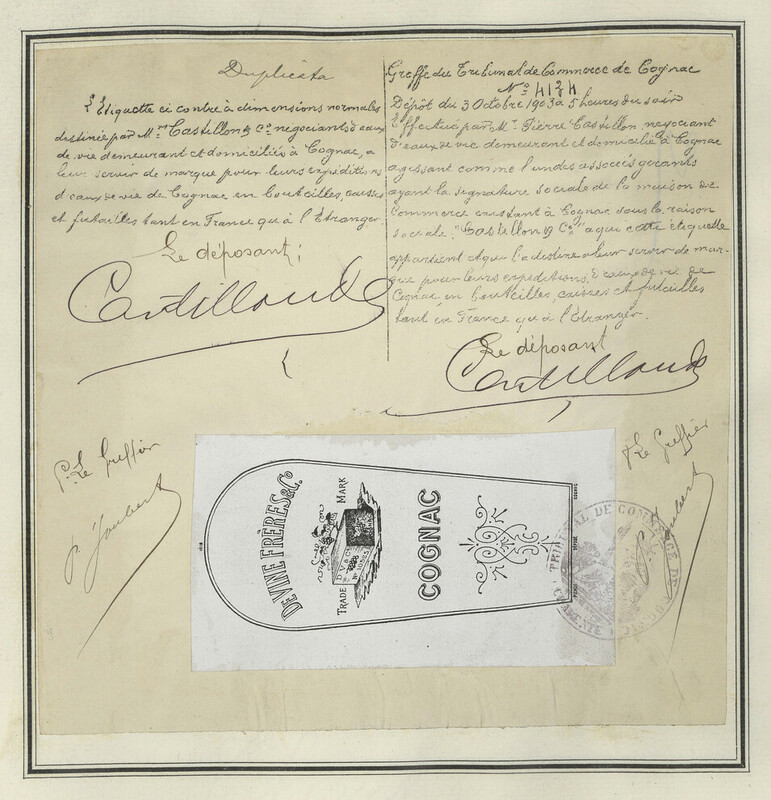 Duplicata
L'Etiquette ci contre à dimensions normales
destinée par M.rs Castillon & Co négociants d'eaux
de vie demeurant et domiciliés à Cognac, a
leur servir de marque pour leurs expéditions
d'eaux de vie de Cognac, en bouteilles, caisses
et futailles tant en France qu'à l'Etranger.
Le déposant:
Castillon & Co
Greffe du Tribunal de Commerce de Cognac
No 4124
Dépôt du 3 Octobre 1903 à 5 heures du soir
Effectué par M.r Pierre Castillon, négociant
d'eaux de vie demeurant et domicilié à Cognac
agissant comme l'un des associés gérants
ayant la signature sociale de la maison de
Commerce existant à Cognac sous la raison
sociale "Castillon & Co" a qui cette étiquette
appartient et qui l'a destinée a leur servir de mar-
que pour leurs expéditions, d'eaux de vie de
Cognac en bouteilles, caisses et futailles
tant en France qu'à l'Etranger.
Le déposant
Castillon & Co
P. Le Greffier
P. Joubert
P. Le Greffier
P. Joubert
DEVINE FRÈRES & Co
TRADE MARK
COGNAC
COGNAC
TRIBUNAL DE COMMERCE DE COGNAC
CHARENTE